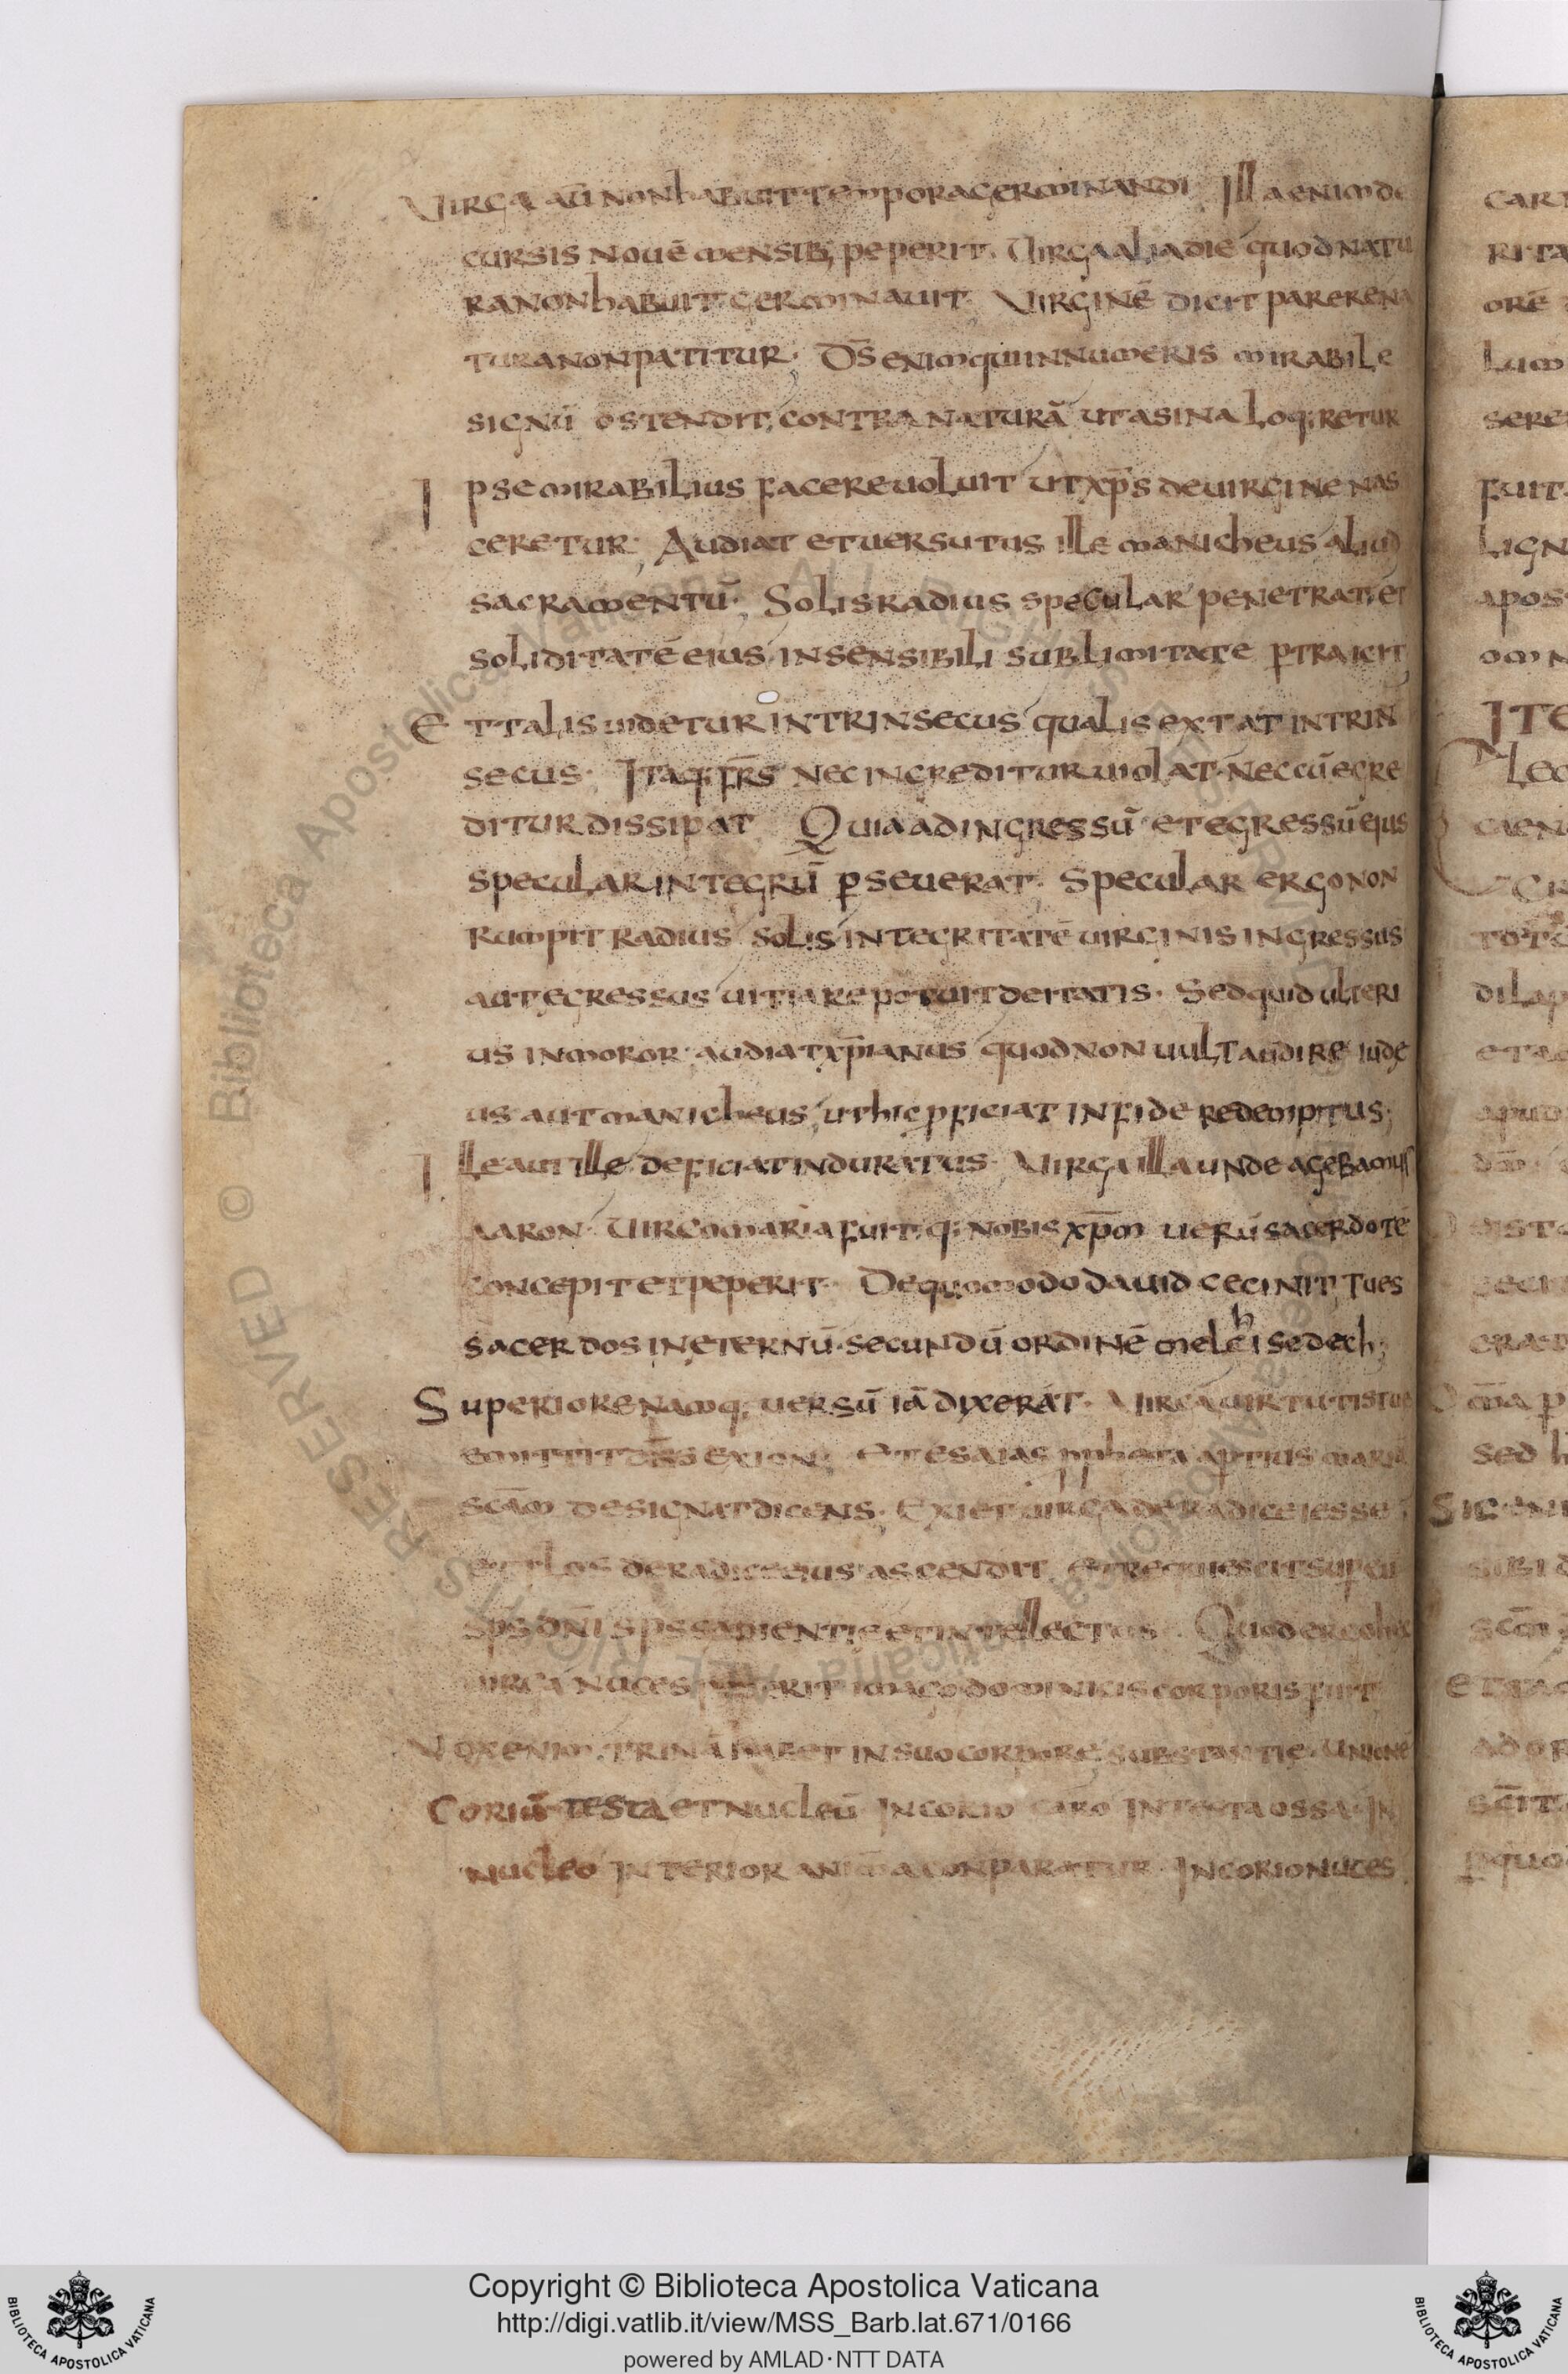 Virga aũ non habuit tempora germinandi. Illa enim de
cursis nouẽ mensib; peperit. Virga alia die quod natu
ra non habuit germinauit. Virginẽ dicit parere na
tura non patitur. D̅s̅ enim qui in numeris mirabile
signũ ostendit, contra naturã ut asina loq;retur
Ipse mirabilius facere uoluit ut xp̅s de uirgine nas
ceretur; Audiat et uersutus ille manicheus aliud
sacramentũ; Solis radius specular penetrat, et
soliditatẽ eius insensibili sublimitate ptraicit
Et talis uidetur intrinsecus qualis extat intrin
secus. Itaq; fr̅s nec ingreditur uiolat. Nec cũ egre
ditur dissipat. Quia ad ingressũ et egressũ eius
specular integrũ pseuerat. Specular ergo non
rumpit radius solis integritatẽ uirginis ingressus
aut egressus uitiare potuit deitatis. Sed quid ulteri
us inmoror. audiat xp̅ianus quod non uult audire iude
us aut manicheus, ut hic pficiat in fide redempitus;
Ille aut ille deficiat induratus. Virga illa unde agebamus
aaron. Uirgo maria fuit, q; nobis xp̅m uerũ sacerdotẽ
concepit et peperit. De quo modo dauid cecinit, Tu es
sacerdos in eternũ. secundũ ordinẽ melchisedech;
Superiore namq; uersũ iã dixerat. Virgã uirtutis tue
emittit dn̅s ex ion; Et esaias aptius maria
sc̅am designat dicens. Exiet uirga de radice iesse
et flos de radice eius ascendit. Et requiescit sup eũ
sp̅s dn̅i sp̅s sapientie et intellectus. Quod ergo hec
uirga nuces imago dominicis corporis fuit
Nox enim trinã habet in suo corpore substantie unionẽ
Coriũ testa et nucleũ In corio caro In testa ossa. In
nucleo Interior anim̅a conparatur. In corio nuces
Copyright © Biblioteca Apostolica Vaticana
http://digi.vatlib.it/view/MSS_Barb.lat.671/0166
powered by AMLAD·NTT DATA